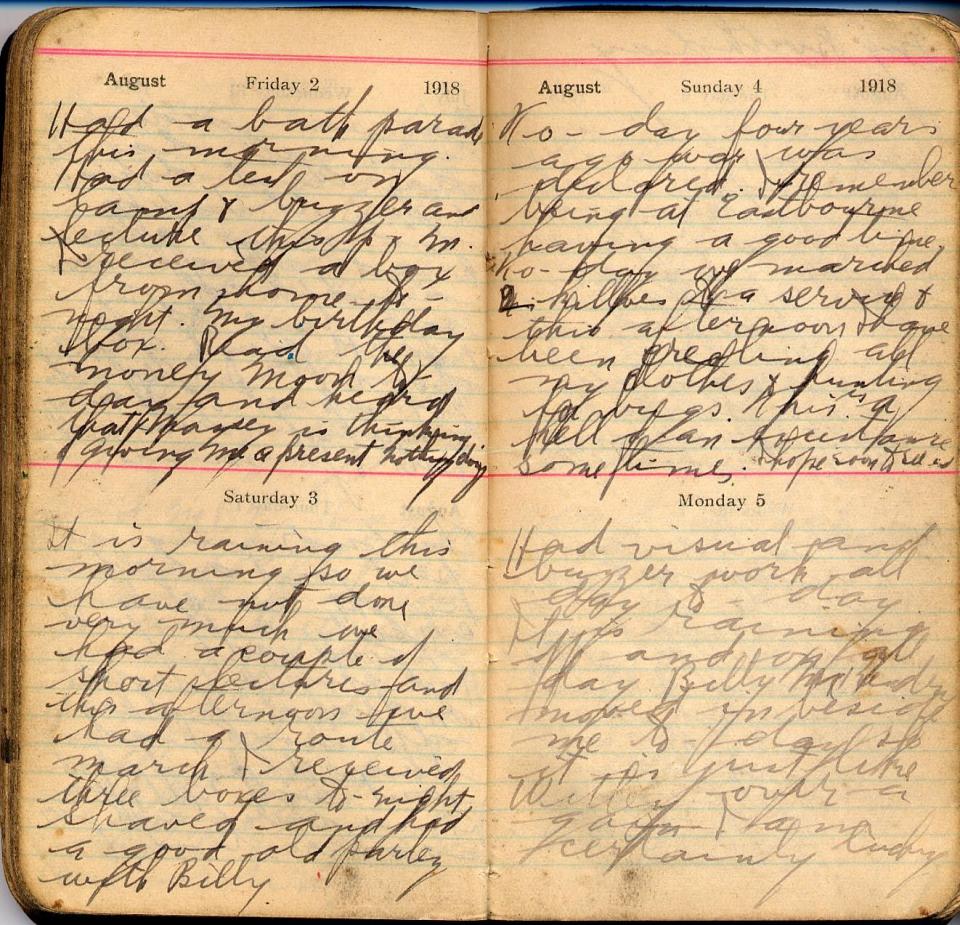 August Friday 2 1918
Had a bath parade
this morning.
Had a test on
lamp & buzzer and
lecture this p.m.
I received a box
from home to-
night. My birthday
box. Read the
money Moon to
day and heard
that is thinking
of giving me a present nothing doing
Saturday 3
It is raining this
morning so we
have not done
very much we
had a couple of
short lectures and
this afternoon we
had a route
march I received
three boxes to-night,
shaved and had
a good old parley
with Billy
August Sunday 4 1918
To-day four years
ago war was
declared. I remember
being at Eastbourne
having a good time.
To-day we marched
2 to a service &
this afternoon I have
been all
my clothes & hunting
for bugs. This is a
hell of an
sometimes. I hope soon to
Monday 5
Had visual and
buzzer work all
day to-day
It is raining
off and on all
day Billy
moved in beside
me to-day so
it is just like
Witley over a
gain I am
certainly lucky